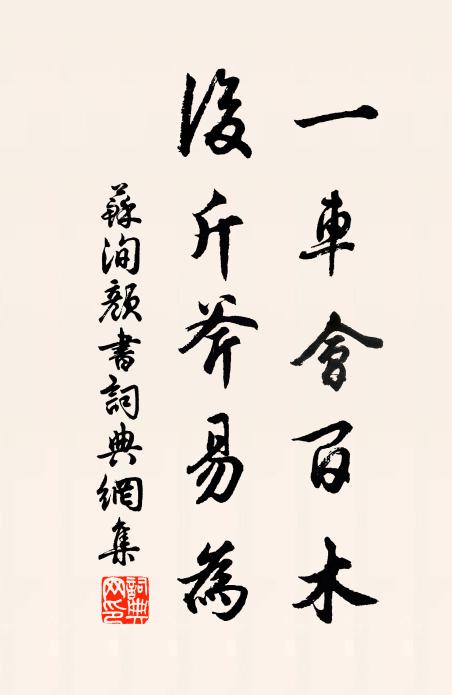 一車會百木
後斤斧易為
蘇洵顏書詞典網集
詞典网印